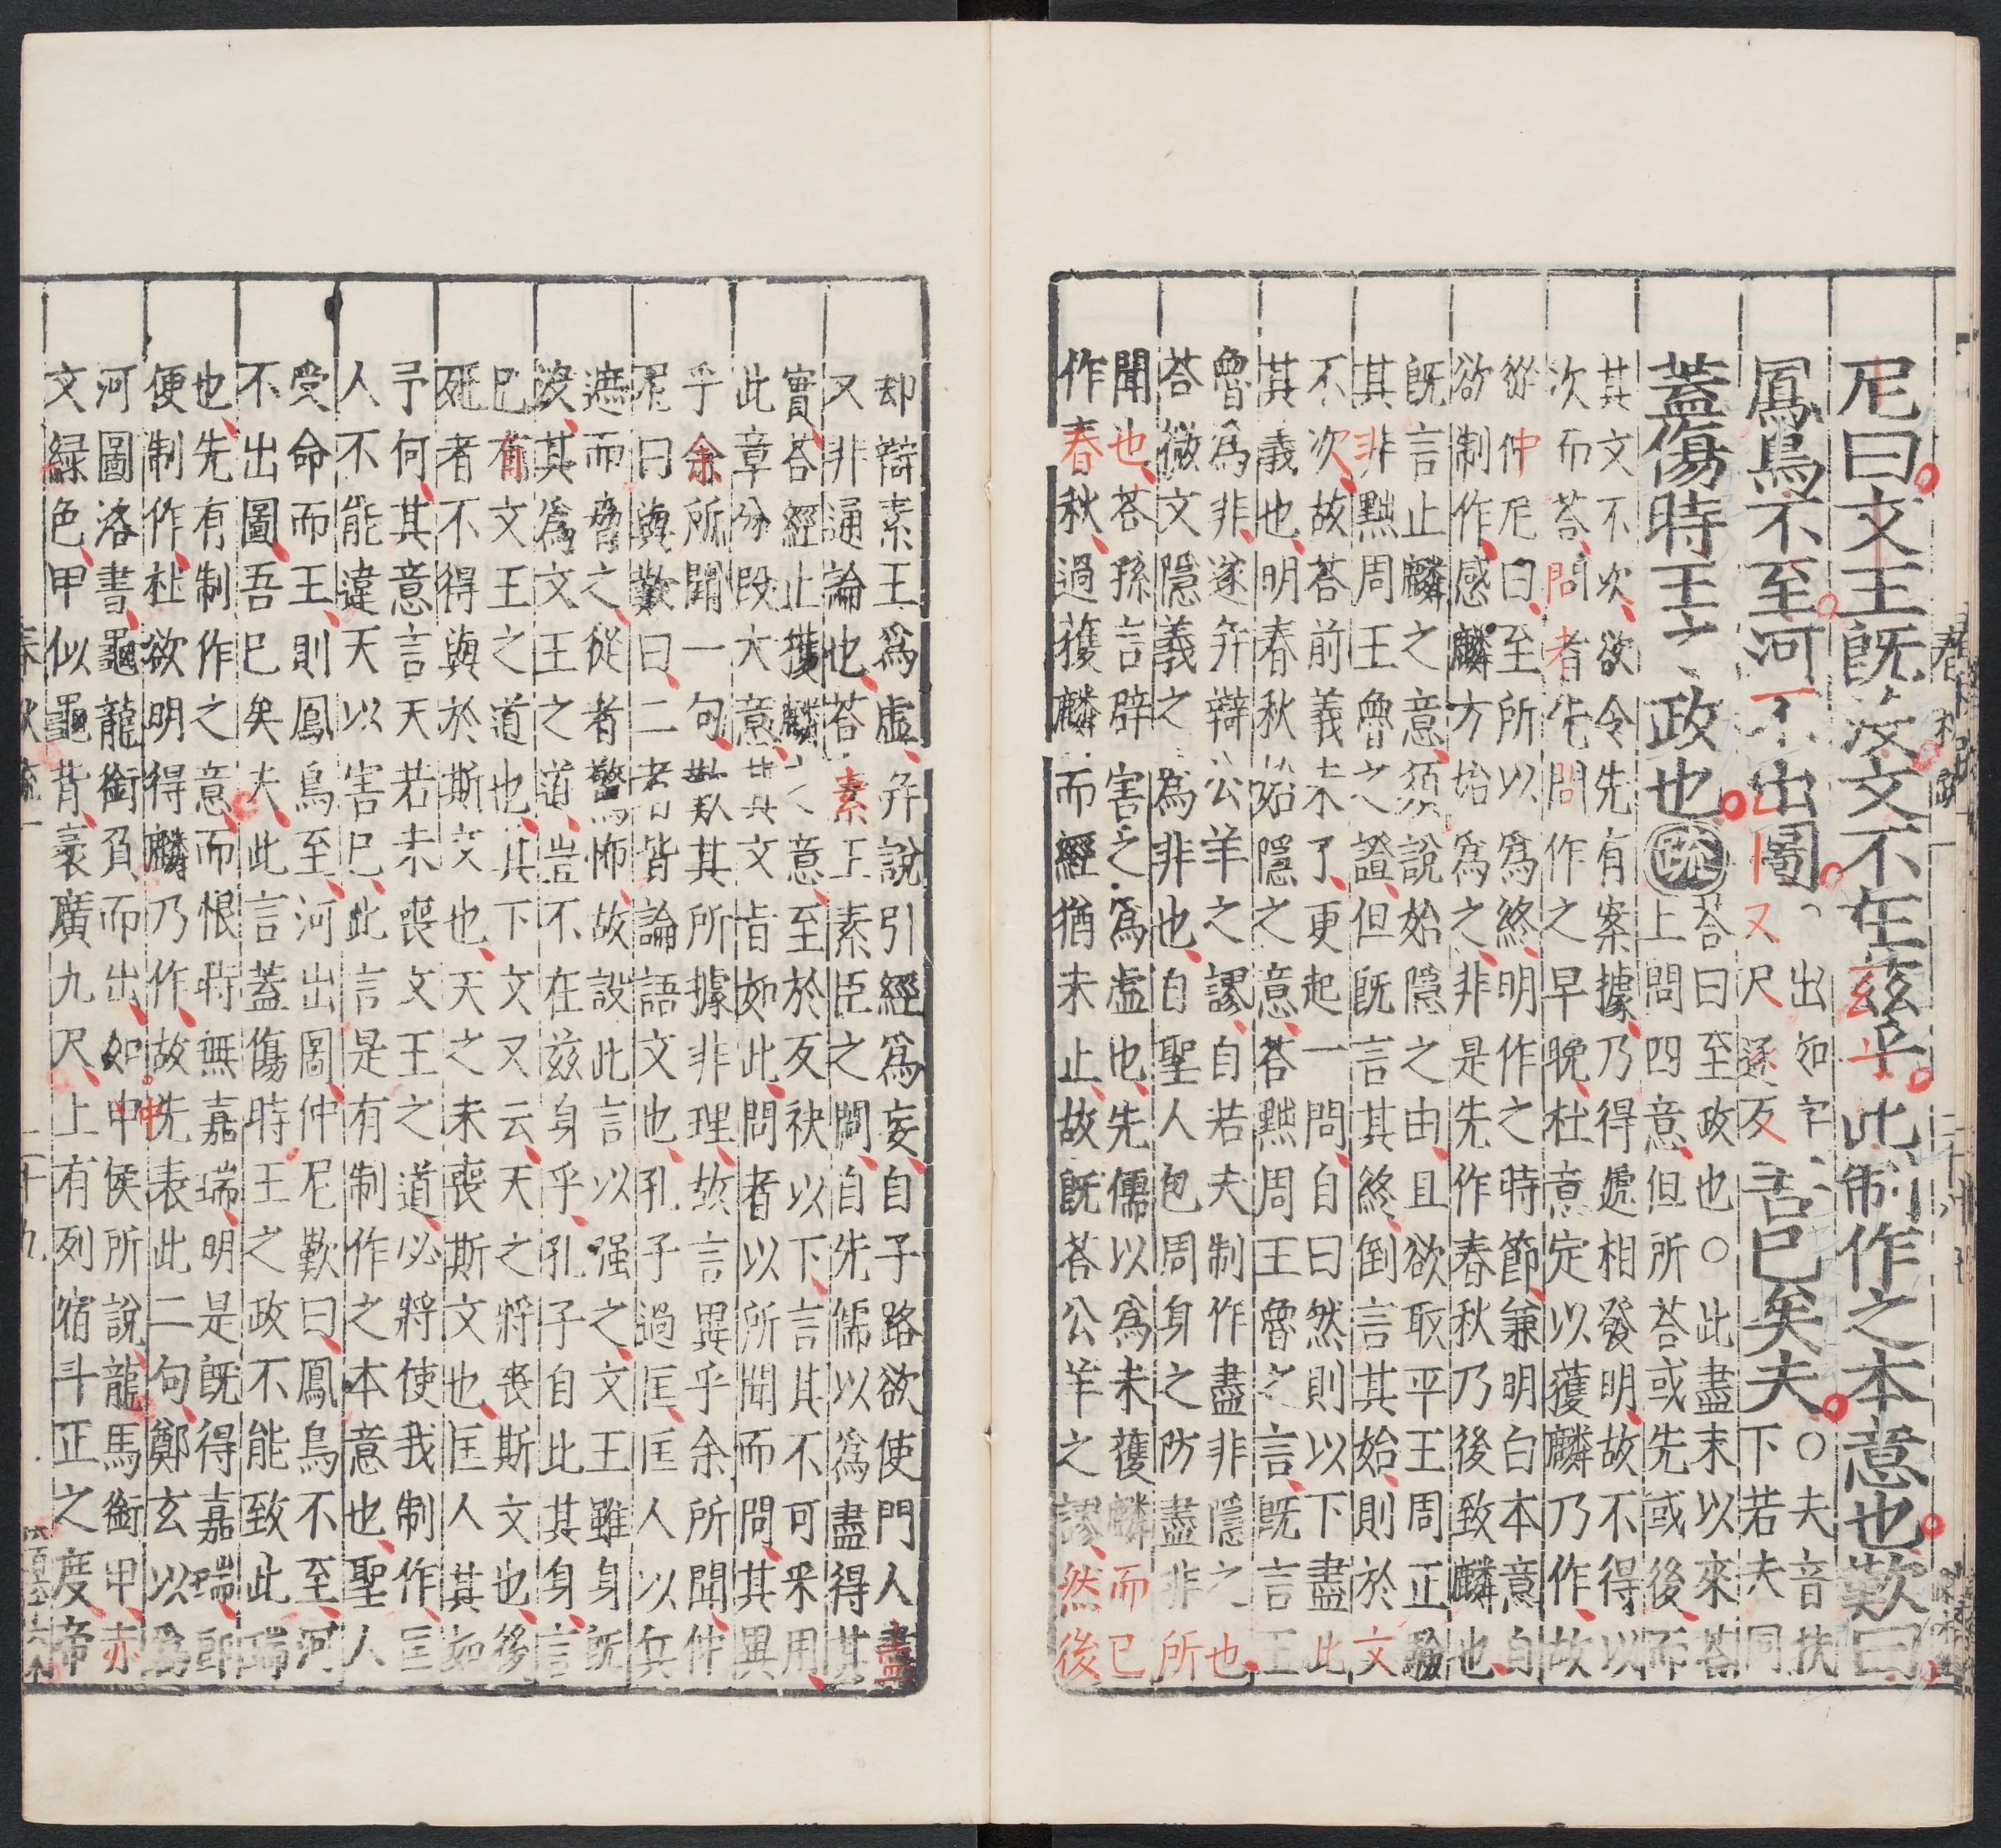 尼曰文王既没文不在兹乎此制作之本意也歎曰
鳳鳥不至河不出圖出如字又尺遂反吾已矣夫○夫音扶下若夫同
蓋傷時王之政也疏荅曰至政也○此盡末以來荅
上問四意但所荅或先或後而
其文不次欲令先有案據乃得遞相發明故不得以
次而荅問者先問作之早晚杜意定以獲麟乃作故
從仲尼曰至所以爲終明作之時節兼明白本意自
欲制作感麟方始爲之非是先作春秋乃後致麟也
既言止麟之意須說始隱之由且欲取平王周正驗
其非黜周王魯之證但既言其終倒言其始則於文
不次故荅前義未了更起一問自曰然則以下盡此
其義也明春秋始隱之意荅黜周王魯之言既言王
魯爲非遂并辯公羊之謬自若夫制作盡非隱之也
荅微文隱義之爲非也自聖人包周身之防盡非所
聞也荅孫言辟害之爲虛也先儒以爲未獲麟而已
作春秋過獲麟而經猶未止故既荅公羊之謬然後
却辯素王爲虛并說引經爲妄自子路欲使門人盡
又非通論也荅素王素臣之問自先儒以爲盡得其
實荅經止獲麟之意至於反袂以下言其不可采用
此章分段大意其文旨如此問者以所聞而問其異
乎余所聞一句歎其所據非理故言異乎余所聞仲
尼曰與歎曰二者皆論語文也孔子過匡匡人以兵
遮而脅之從者驚怖故設此言以强之文王雖身既
没其爲文王之道豈不在兹身乎孔子自此其身言
已有文王之道也其下文又云天之將喪斯文也後
死者不得與於斯文也天之未喪斯文也匡人其如
予何其意言天若未喪文王之道必將使我制作匡
人不能違天以害已此言是有制作之本意也聖人
受命而王則鳳鳥至河出圖仲尼歎曰鳳鳥不至河
不出圖吾已矣夫此言蓋傷時王之政不能致此瑞
也先有制作之意而恨時無嘉瑞明是既得嘉瑞即
便制作杜欲明得麟乃作故先表此二句鄭玄以爲
河圖洛書龜龍銜負而出如中候所說龍馬銜甲赤
文綠色甲似龜背袤廣九尺上有列宿斗正之度帝